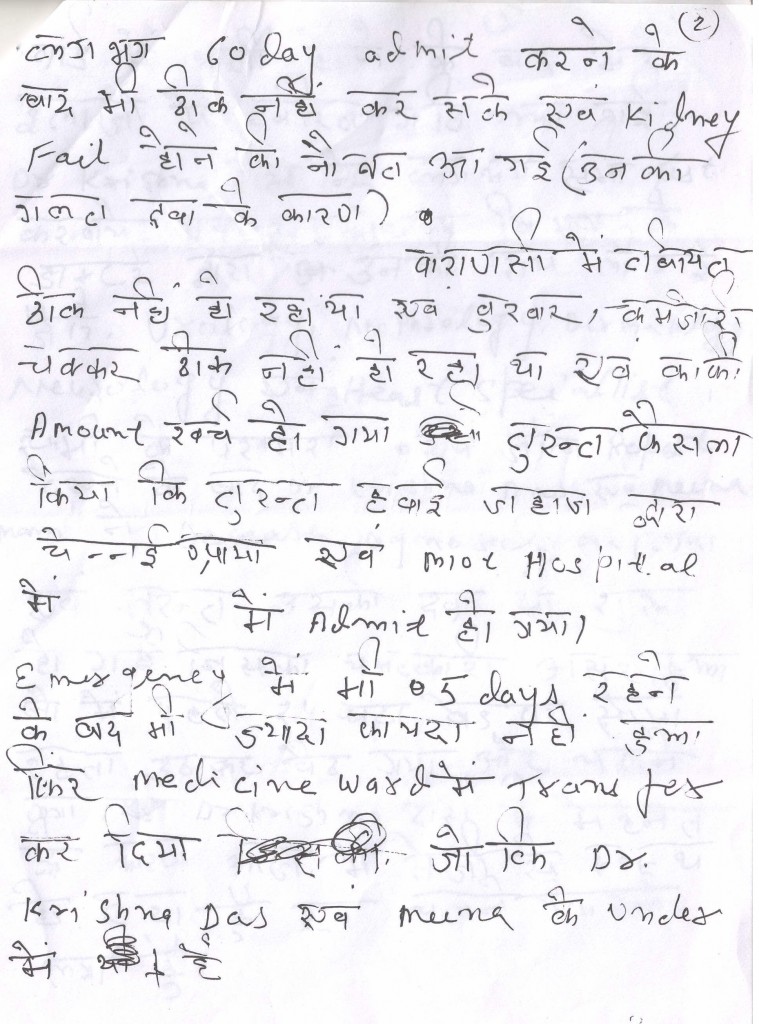 (2)
लगभग 60 day admit करने के
बाद भी ठीक नहीं कर सके एवं Kidney
Fail होने की नौबत आ गई (उनकी
गलत दवा के कारण)
वाराणसी में तबियत
ठीक नहीं हो रहा था एवं बुखार, कमजोरी
चक्कर ठीक नहीं हो रहा था एवं काफी
Amount खर्च हो गया तुरन्त फैसला
किया कि तुरन्त हवाई जहाज द्वारा
चेन्नई आया एवं miot Hospital
में में Admit हो गया।
Emergency में भी 05 days रहने
के बाद भी ज्यादा फायदा नहीं हुआ
फिर medicine ward में Transfer
कर दिया जो कि Dr.
Krishna Das एवं meena के under
में है